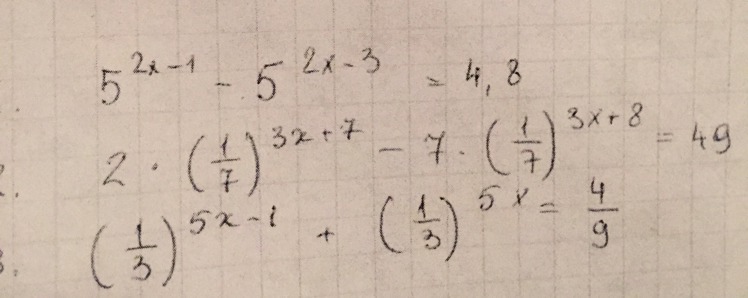 . 5^{2x-1} - 5^{2x-3} = 4,8
2. 2 · (1/7)^{3x+7} - 7 · (1/7)^{3x+8} = 49
3. (1/3)^{5x-1} + (1/3)^{5x} = 4/9